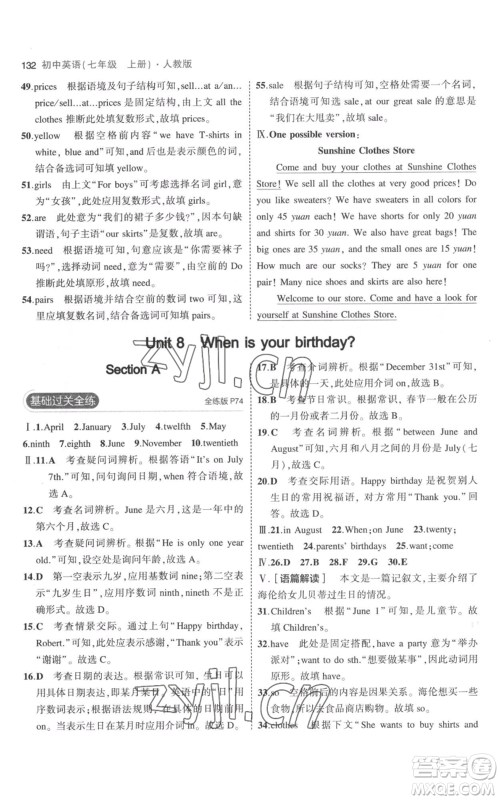 132 初中英语(七年级 上册)·人教版
49.prices 根据语境及句子结构可知,sell...at/
for...prices 是固定结构,由上文 all the
clothes 推断此处填复数形式,故填 prices。
50.yellow 根据空格前内容“we have T-shirts in
white, blue and”可知,空格处应是颜色的词,
结合备选词可知填 yellow。
51.girls 由上文“For boys”可知,此处应用复数
形式,故填 girls。
52.are 此处意为“我们的裙子多少钱?”,本句缺
谓语,句子主语“our skirts”是复数,故填 are。
53.need 根据语境可知,句意应该是“你需要袜
子吗?”,need 意为“需要”,由空格前的 Do 推
出此处填原形,故填 need。
54.pairs 根据语境并结合空前的数词 two 可知,
此处应填复数形式,故填 pairs。
55.sale 根据空格前的 a great 可知,此处需要填
一个名词,再结合上文中的衣服都以低价售卖,
结合语境可知填 sale,at our great sale 的意思是
“我们在大甩卖”,故填 sale。
Ⅸ.One possible version:
Sunshine Clothes Store
Come and buy your clothes at Sunshine Clothes
Store! We sell all the clothes at very good prices! Do
you like sweaters? We have sweaters in all colors for
only 45 yuan each! We have shorts for only 20 yuan
and skirts for 30 yuan. We also have great bags! The
big ones are 20 yuan, and the small ones are 15 yuan
each! How much are our socks? They are only 5 yuan for
one pair! We have many shirts and skirts, too!
Welcome to our store. Come and have a look for
yourself at Sunshine Clothes Store.
Unit 8 When is your birthday?
Section A
基础过关全练 全练版 P74
Ⅰ.1.April 2.January 3.July 4.twelfth 5.May
6.ninth 7.eighth 8.June 9.February 10.twentieth
Ⅱ.11.A 考查疑问词辨析。根据答语“It's on July
7th.”可知,询问日期,when 符合语境,故
选 A。
12.C 考查名词辨析。June 是六月,这是一年中的
第六个月,故选 C。
13.A 考查疑问词辨析。根据“He is only one year
old.”可知,此处应问年龄,故选 A。
14.D 第一空表示九岁,应用基数词 nine;第二空表示
“九岁生日”,应用序数词 ninth,故选 D。
15.C 考查情景交际。根据“Happy birthday,
Robert.”可知,此处应表示感谢,“Thank you”表示
“谢谢”。故选 C。
16.D 根据具体日期,即某月某日,英语中的“日”用
序数词,根据语法规则,在具体的某一天用介词
on,表示出生在某月时应用介词 in,故选 D。
17.B 考查介词辨析。根据“December 31st”可知,
是具体的一天,应用 on,故选 B。
18.C 根据常识可知,一年有十二个月份,所以这里
指一个月份或者二月份。故选 C。
19.C 考查名词词义辨析。根据“between June and
August”可知,六月和八月之间的月份是 July(七
月)。故选 C。
20.D 考查交际用语。Happy birthday 是祝别人
生日的常用祝福语,对方常用“Thank you.”回
答。故选 D。
Ⅲ.21.in August 22.When;on June 23.twenty;
twentieth 24.parents' birthdays 25.How old
Ⅳ.26.D 27.B 28.F 29.G 30.E
Ⅴ.[语篇解读] 本文是一篇记叙文,主要讲述了
海伦给女儿贝蒂过生日的情况。
31.Children's 根据“June 1”可知,是儿童节。故
填 Children's。
32.have 此处是固定搭配,have a party 意为“举办
派对”;want to do sth.意为“想要做某事”,因此
动词用原形。故填 have。
33.so 空格前后的内容为因果关系。海伦想要做某事,
所以去食品商店。故填 so。
34.clothes 根据下文“She wants to buy shirts and